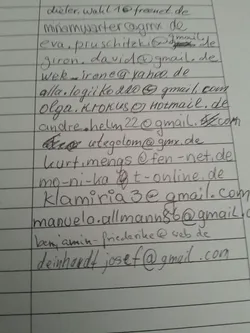 dieter.wahl1@freenet.de
minamwarter@gmx.de
eva.pruschitzki@gmail.de
giron.david@gmail.de
wek_irene@yahoo.de
alla.logiko220@gmail.com
olga.krokus@hotmail.de
andre.helm22@gmail.com
utegolom@gmx.de
kurt.mengs@fen-net.de
mo-ni-ka@t-online.de
klamiria3@gmail.com
manuela.allmann86@gmail.co
benjamin-friederike@web.de
deinhardtjosef@gmail.com